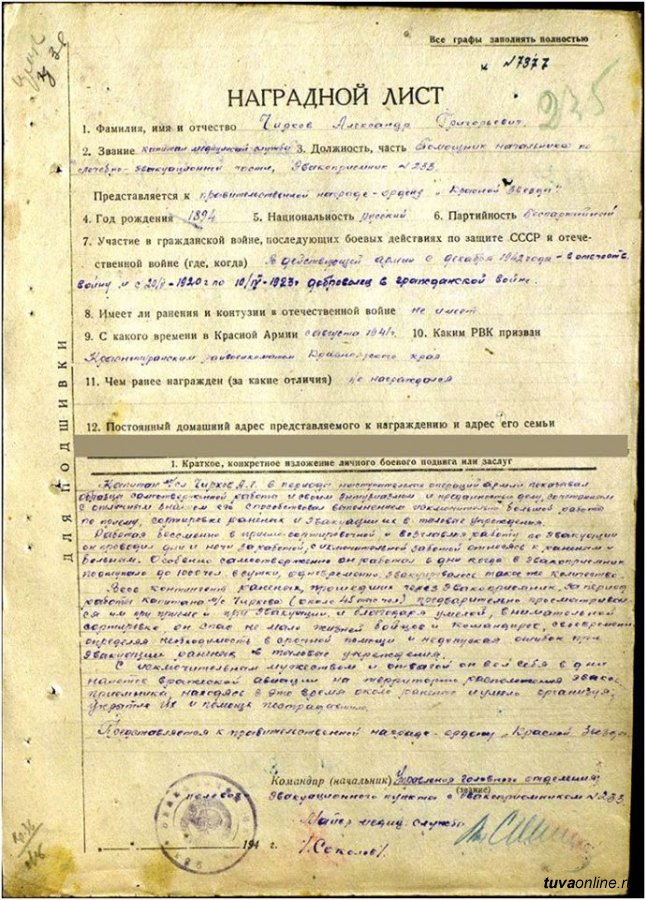 Все графы заполнять полностью
№7377
235
НАГРАДНОЙ ЛИСТ
1. Фамилия, имя и отчество Чирков Александр Григорьевич.
2. Звание капитан медицинской службы 3. Должность, часть Помощник начальника по
лечебно-эвакуационной части, Эвакоприемник №233
Представляется к правительственной награде - ордену „Красной Звезды"
4. Год рождения 1894 5. Национальность русский 6. Партийность беспартийный
7. Участие в гражданской войне, последующих боевых действиях по защите СССР и отече-
ственной войне (где, когда) В действующей армии с декабря 1942 года - в отечеств.
войну и с по 1923г доброволец в гражданской войне.
8. Имеет ли ранения и контузии в отечественной войне не имеет
9. С какого времени в Красной Армии с августа 1941г. 10. Каким РВК призван
райвоенкоматом Красноярского края
11. Чем ранее награжден (за какие отличия) не награждался
12. Постоянный домашний адрес представляемого к награждению и адрес его семьи
ДЛЯ ПОДШИВКИ
1. Краткое, конкретное изложение личного боевого подвига или заслуг
Капитан м/сл Чирков А.Г. в период наступательных операций армии показывал
образцы самоотверженной работы и своим энтузиазмом и преданностью делу, сочетанным
с отличным знанием его способствовал выполнению исключительно большой работы
по приему, сортировке раненых и эвакуации их в тыловые учреждения.
Работая бессменно в приемо-сортировочной и возглавляя работу по эвакуации
он проводил дни и ночи за работой, с исключительной заботой относясь к раненым и
больным. Особенно самоотверженно он работал в дни когда в эвакоприемник
поступало до 1000 чел. в сутки, одновременно эвакуировалось такое же количество.
Весь контингент раненых, прошедших через эвакоприемник, за период
работы капитана м/с Чиркова (около 45 тысяч) предварительно просматривал-
ся им при приеме и при эвакуации и благодаря умелой, внимательной
сортировке, он спас не мало жизней бойцов и командиров, своевременно
определяя необходимость в срочной помощи и недопуская ошибок при
эвакуации раненых в тыловые учреждения.
С исключительным мужеством и отвагой он вел себя в дни
налетов вражеской авиации на территорию расположения эвако-
приемника, находясь в это время около раненых и умело организуя
укрытие их и помощь пострадавшим.
Представляется к правительственной награде - ордену „Красной Звезды"
Командир (начальник) Управления головного отделения
(звание)
эвакуационного пункта с эвакоприемником №233
Майор медиц. службы
194 г. /Соколов/
tuvaonline.r